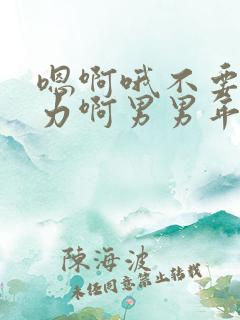 嗯啊哦不要
力啊男男年
陳海波
未经同意禁止转载